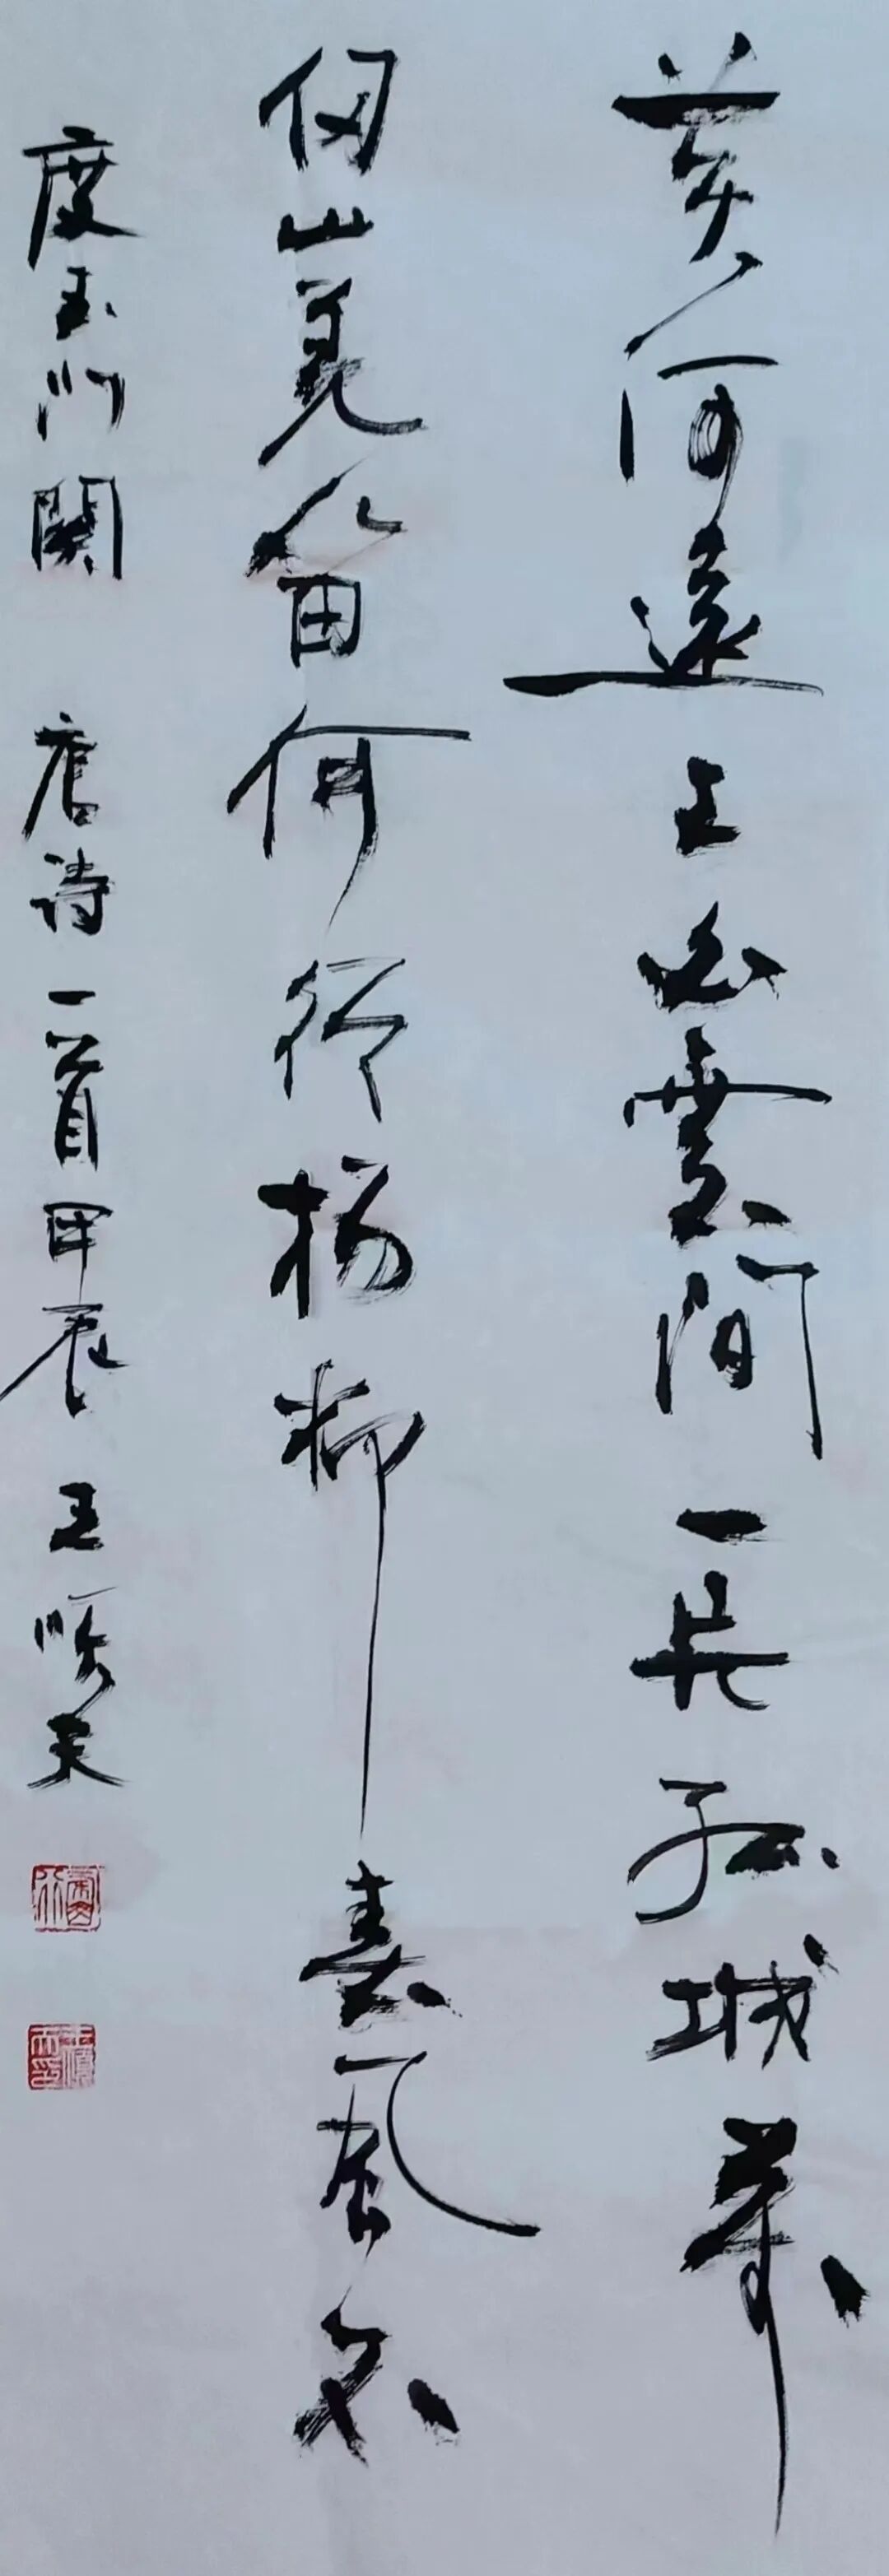 黄河遠上白雲間一片孤城萬
仞山羌笛何須楊柳春風不
度玉門関 唐詩一首甲辰 王順天